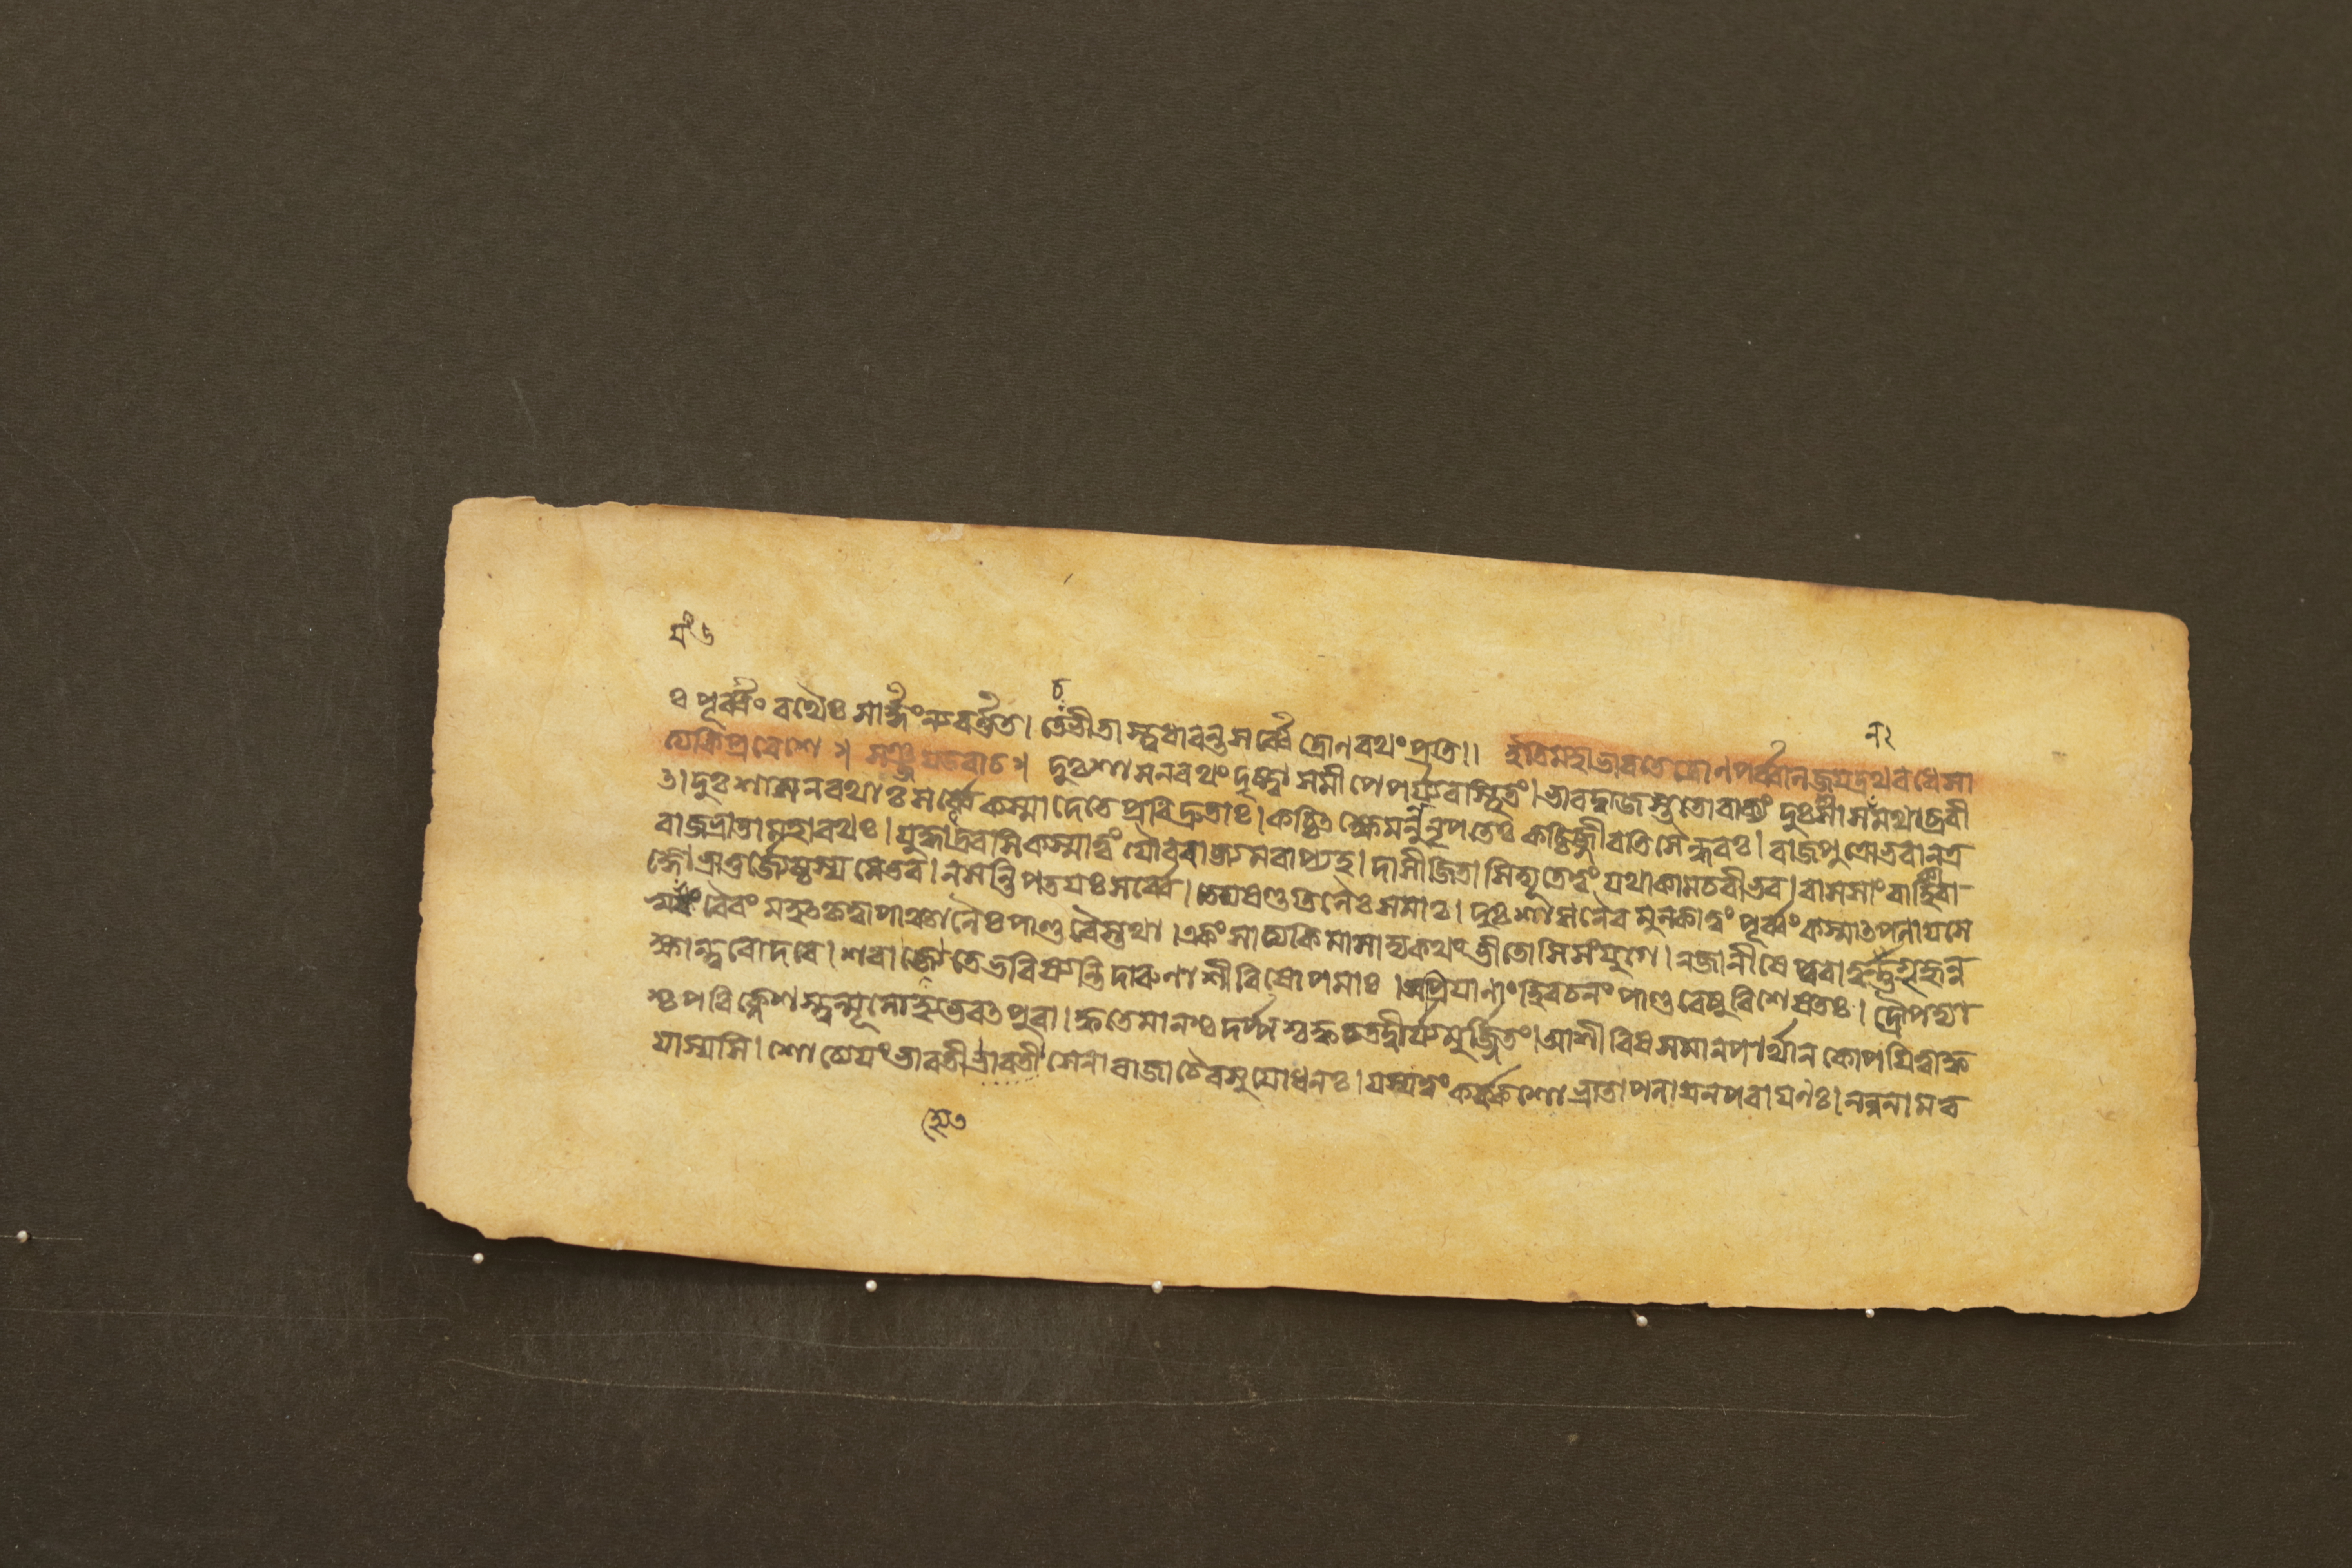 ঃ পূর্ব্বং রথৈঃ সার্দ্ধং ন্যবর্ত্তত। তে ভীতাস্ত্বধাবন্ত সর্ব্বে দ্রোনরথং প্রতি।। ইতি মহাভারতে দ্রোণপর্ব্বনি জয়দ্রথবধে সা
ত্যকিপ্রবেশে॥ সঞ্জয় উবাচ॥ দুঃশাসনরথং দৃষ্ট্বা সমীপে পর্য্যবস্থিতং। ভারদ্বাজস্ততো বাক্যং দুঃশাসনমথাব্রবী
ৎ। দুঃশাসন রথাঃ সর্ব্বে কস্মাদেতে প্রবিদ্রুতাঃ। কচ্চিত ক্ষেমন্নু নৃপতেঃ কচ্চিজ্জীবতি সৈন্ধবঃ। রাজপুত্রো ভবানত্র
রাজভ্রাতা মহারথঃ। দ্রবসি কস্মাত্ত্বং যৌবরাজ্যমবাপ্য হ। দাসী জিতাসি দ্যূতে ত্বং যথাকামচরী ভব। বাসসাং বাহিকা রা
জ্ঞো ভ্রাতুর্জ্যেষ্ঠস্য মে ভব। ন সন্তি পতয়ঃ সর্ব্বে। তেদ্য ষণ্ডতিলৈঃ সমাঃ। দুঃশাসনৈব মুক্ত্বা ত্বং পূর্ব্বং কস্মাৎ পলায়সে
স্বয়ং বৈরং মহৎ কৃত্বা পাঞ্চালৈঃ পাণ্ডবৈস্তথা। একং সাত্যকিমাসাদ্য কথং ভীতোসি সংযুগে। ন জানীষে পুরা গৃহ্নন্ন
ক্ষান্দুরোদরে। শরা হ্যেতে ভবিষ্যন্তি দারুণাশীবিষোপমাঃ। অপ্রিয়ানাং হি বচনং পাণ্ডবেষু বিশেষতঃ। দ্রৌপদ্যা
শ্চ পরিক্লেশস্ত্বন্মূলো হ্যভবৎ পুরা। ক্ব তে মানশ্চ দর্পশ্চ ক্ব চ তদ্বীর্য্যমূর্জ্জিতং। আশীবিষসমানপার্থান কোপয়িত্বা ক্ব
যাস্যসি। শোচ্যেয়ং ভারতী ভারতী সেনা রাজা চৈব সুযোধনঃ। যস্য ত্বং কর্ক্কশো ভ্রাতা পলায়নপরায়ণঃ। ননু নাম ত্ব